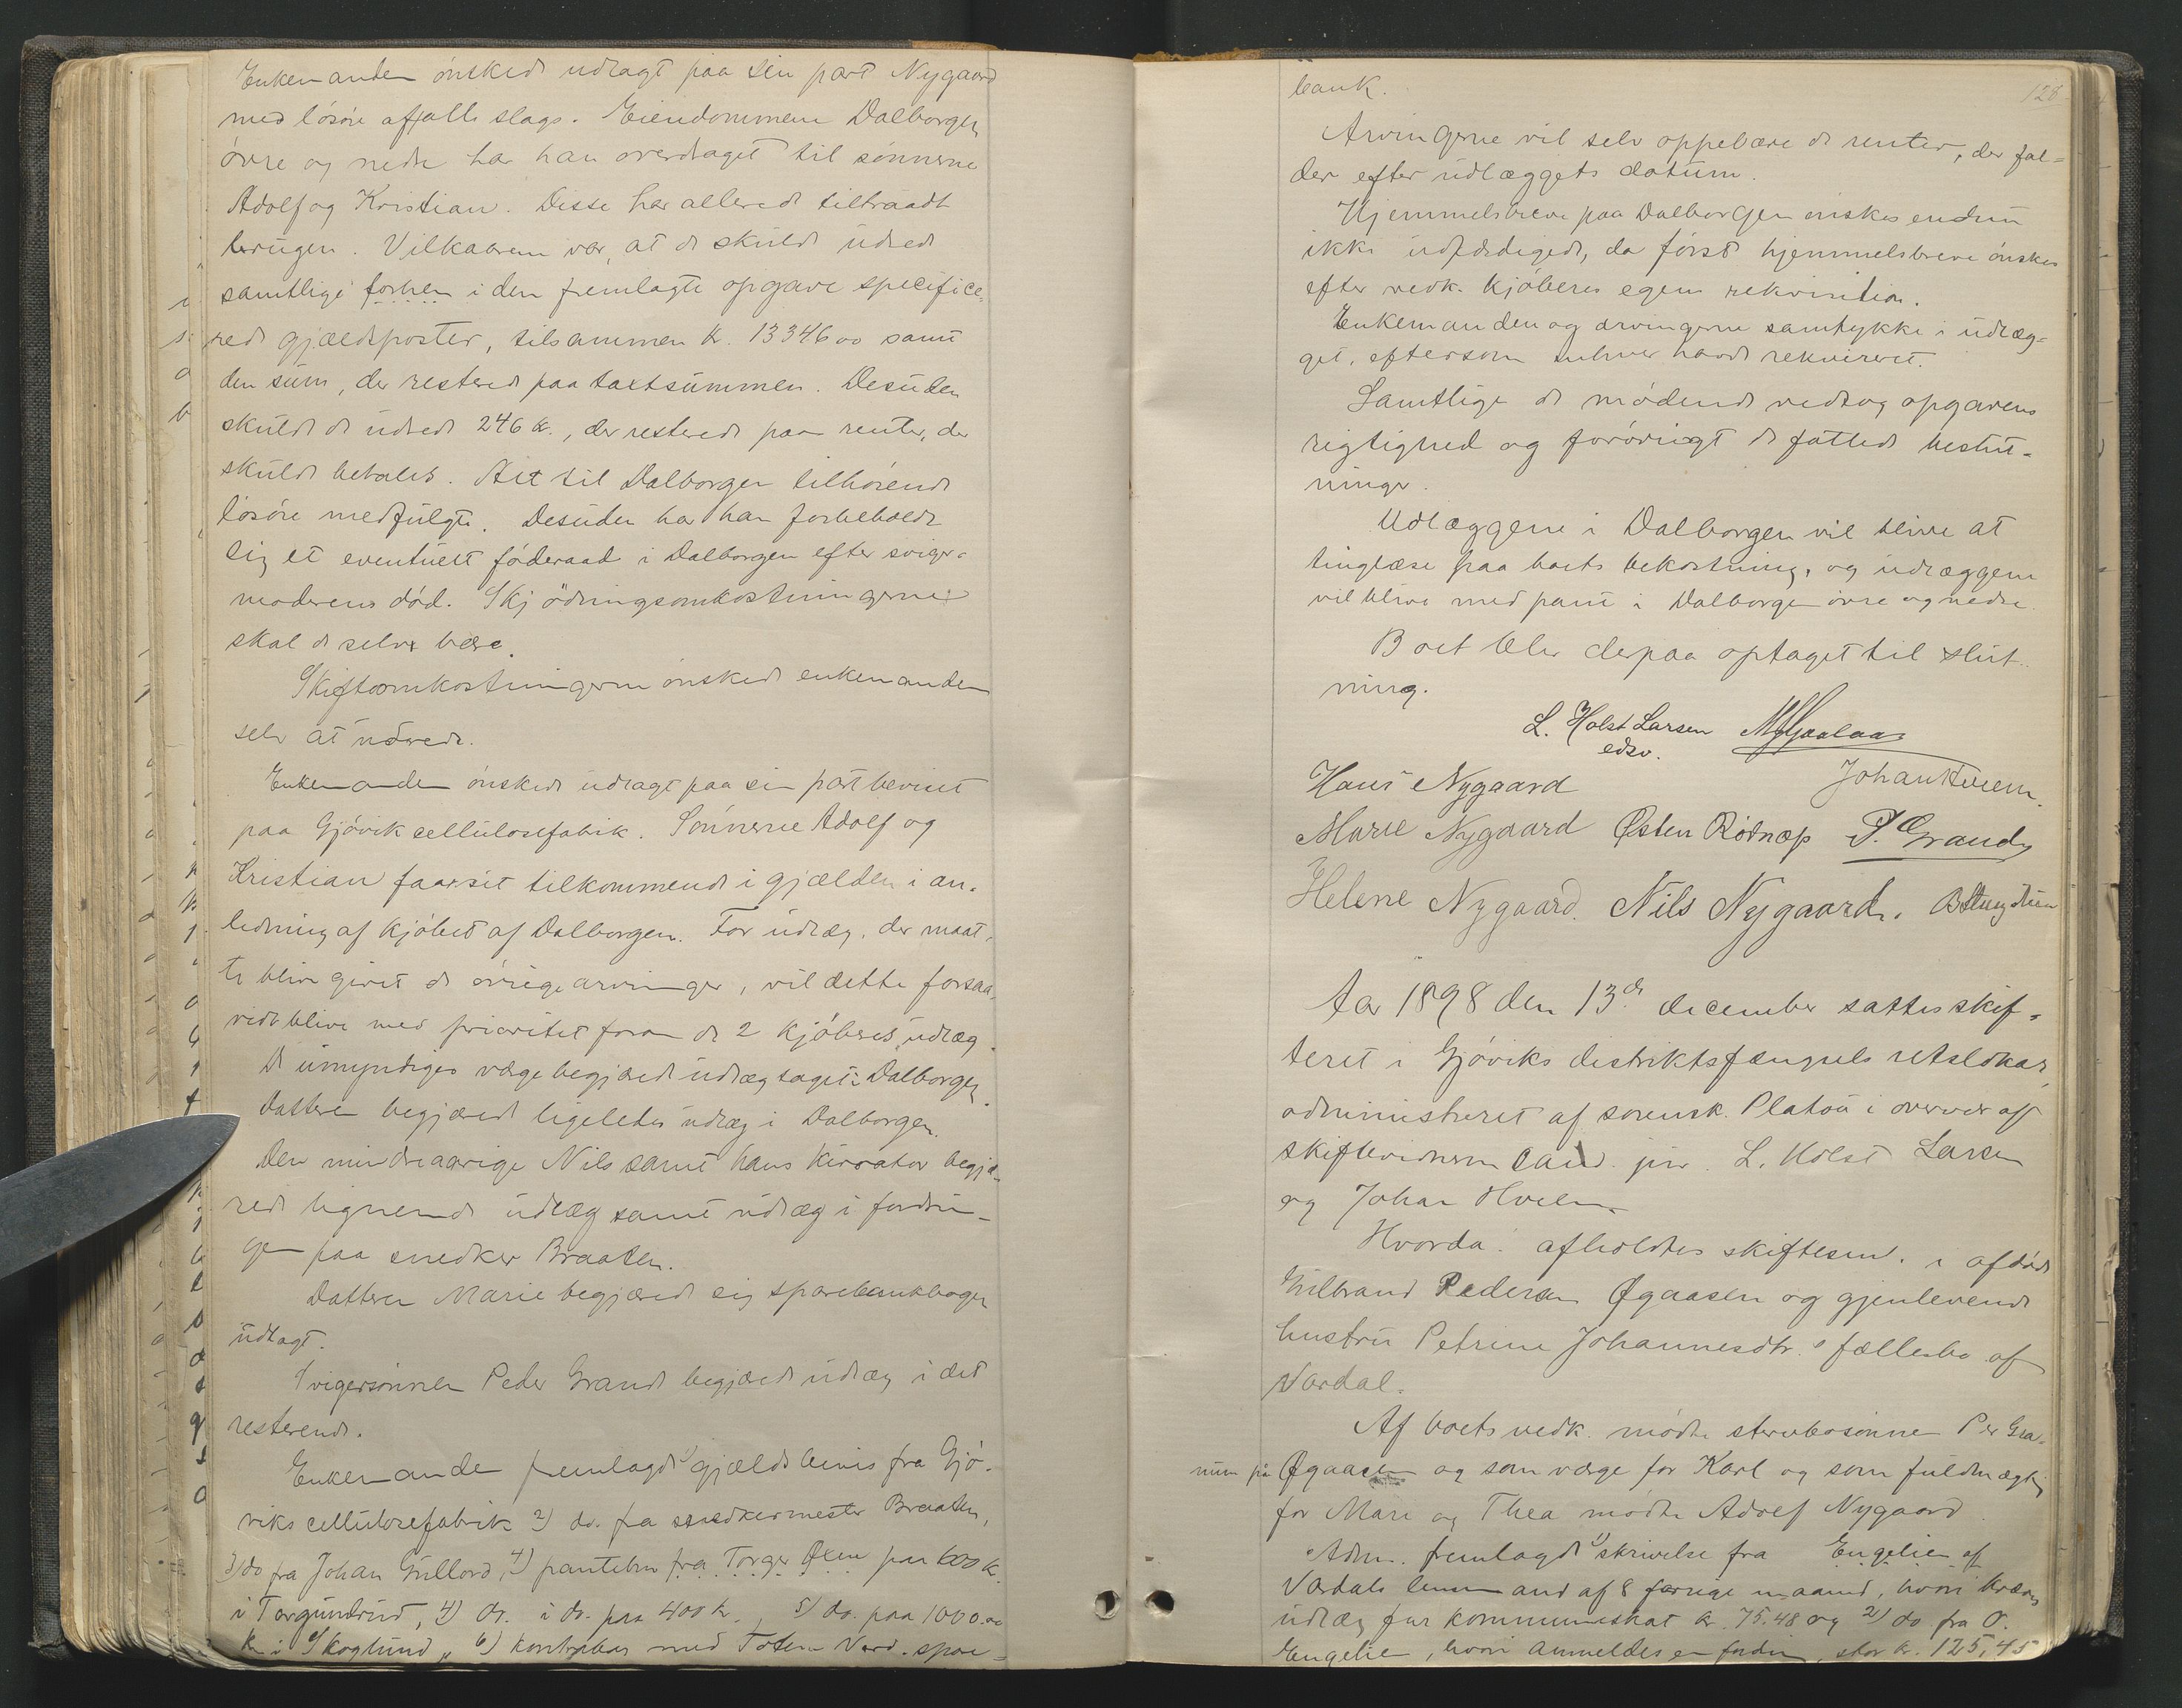 Enkemanden ønskede udlagt paa sin part Nygaard
med løsøre af alle slags. Eiendommene Dalborgen
øvre og nedre har han overdraget til sønnerne
Adolf og Kristian. Disse har allerede tiltraadt
brugen. Vilkaarene var, at de skulde udrede
samtlige forhen i den fremlagte opgave specifice-
rede gjældsposter, tilsammen kr. 13346 00 samt
den sum, der resterede paa taxtsummen. Desuden
skulde de udrede 246 kr., der resterede paa renter, der
skulde betales. Alt til Dalborgen tilhørende
løsøre medfulgte. Desuden har han forbeholdt
sig et eventuelt føderaad i Dalborgen efter sviger-
moderens død. Skjødningsomkostningerne
skal de selv bære.
Skifteomkostningerne ønskede enkemanden
selv at udrede.
Enkemanden ønskede udlagt paa sin part beviset
paa Gjøvik cellulosefabrik. Sønnerne Adolf og
Kristian faar sit tilkommende i gjælden i an-
ledning af kjøbet af Dalborgen. For udlæg, der maat-
te blive givet de øvrige arvinger, vil dette forsaa-
vidt blive med prioritet foran de 2 kjøberes udlæg.
De umyndiges værge begjærede udlæg taget i Dalborgen.
Datteren begjærede ligeledes udlæg i Dalborgen.
Den mindreaarige Nils samt hans kurator begjæ-
rede lignende udlæg samt udlæg i fordrin-
gen paa snedker Braaten.
Datteren Marie begjærede sig sparebankbogen
udlagt.
Svigersønnen Peder Grande begjærede udlæg i det
resterende.
Enkemanden fremlagde 1) gjældsbevis fra Gjø-
viks cellulosefabrik 2) do. fra snedkermester Braaten,
3) do fra Johan Gullord, 4) pantebrev fra Torger Øxne paa 600 k.
i Torgundrud, 4) do. i do. paa 400 kr., 5) do. paa 1000.00
kr i Skoglund, 6) kontrabog med Toten Vard. spare-
128
bank.
Arvingerne vil selv oppebære de renter, der fal-
der efter udlæggets datum.
Hjemmelsbreve paa Dalborgen ønskes endnu
ikke udfærdigede, da først hjemmelsbreve ønskes
efter vedk. kjøberes egen rekvisition.
Enkemanden og arvingerne samtykke i udlæg-
get, eftersom enhver havde rekvireret.
Samtlige de mødende vedtog opgavens
rigtighed og forøvrigt de fattede beslut-
ninger.
Udlæggene i Dalborgen vil blive at
tinglæse paa boets bekostning, og udlæggene
vil blive med pant i Dalborgen øvre og nedre.
Boet blev derpaa optaget til slut-
ning.
L. Holst Larsen
edsv.
Hans Nygaard Johan Hveem.
Marie Nygaard Østen Rødnæs P. Grande
Helene Nygaard. Nils Nygaard.
Aar 1898 den 13de december sattes skif-
teret i Gjøviks distriktsfængsels retslokar,
administreret af sorensk. Platou i overvær af
skiftevidnerne cand. jur. L. Holst Larsen
og Johan Hveem.
Hvorda: afholdtes skiftesam. i afdøde
Gulbrand Pedersen Øgaasen og gjenlevende
hustru Petrine Johannesdtr.s fællesbo af
Vardal.
Af boets vedk. mødte stervbosønnen Per Gra-
num på Øgaasen og som værge for Karl og som fuldmægtig
for Mari og Thea mødte Adolf Nygaard
Adm. fremlagde 1) skrivelse fra Engelien af
Vardals lensmand af 8 forrige maaned, hvori kræves
udlæg for kommuneskat kr. 75.48 og 2) do fra O.
Engelien, hvori anmeldes en fordring, stor kr. 125,45